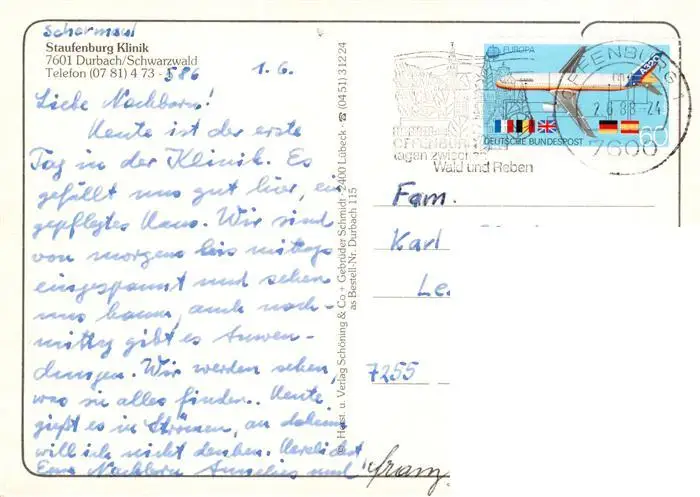 Schermaul
Staufenburg Klinik
7601 Durbach/Schwarzwald
Telefon (07 81) 4 73 - 586
1.6.
Liebe Nachbarn!
Heute ist der erste
Tag in der Klinik. Es
gefällt uns gut hier, ein
gepflegtes Haus. Wir sind
von morgens bis mittags
eingespannt und sehen
uns kaum, auch nach-
mittag gibt es Anwen-
dungen. Wir werden sehen,
was sie alles finden. Heute
gießt es in Strömen, an daheim
will ich nicht denken. Herzlichst
Eure Nachbarn Annelies und Franz
Horst. u. Verlag Schöning & Co + Gebrüder Schmidt · 2400 Lübeck · ☎ (0451) 31224
as Bestell-Nr. Durbach 115
EUROPA
A320
DEUTSCHE BUNDESPOST
60
OFFENBURG 1
2.6.88-24
7600
OFFENBURG
Wald und Reben
Fam.
Karl
Le
7255